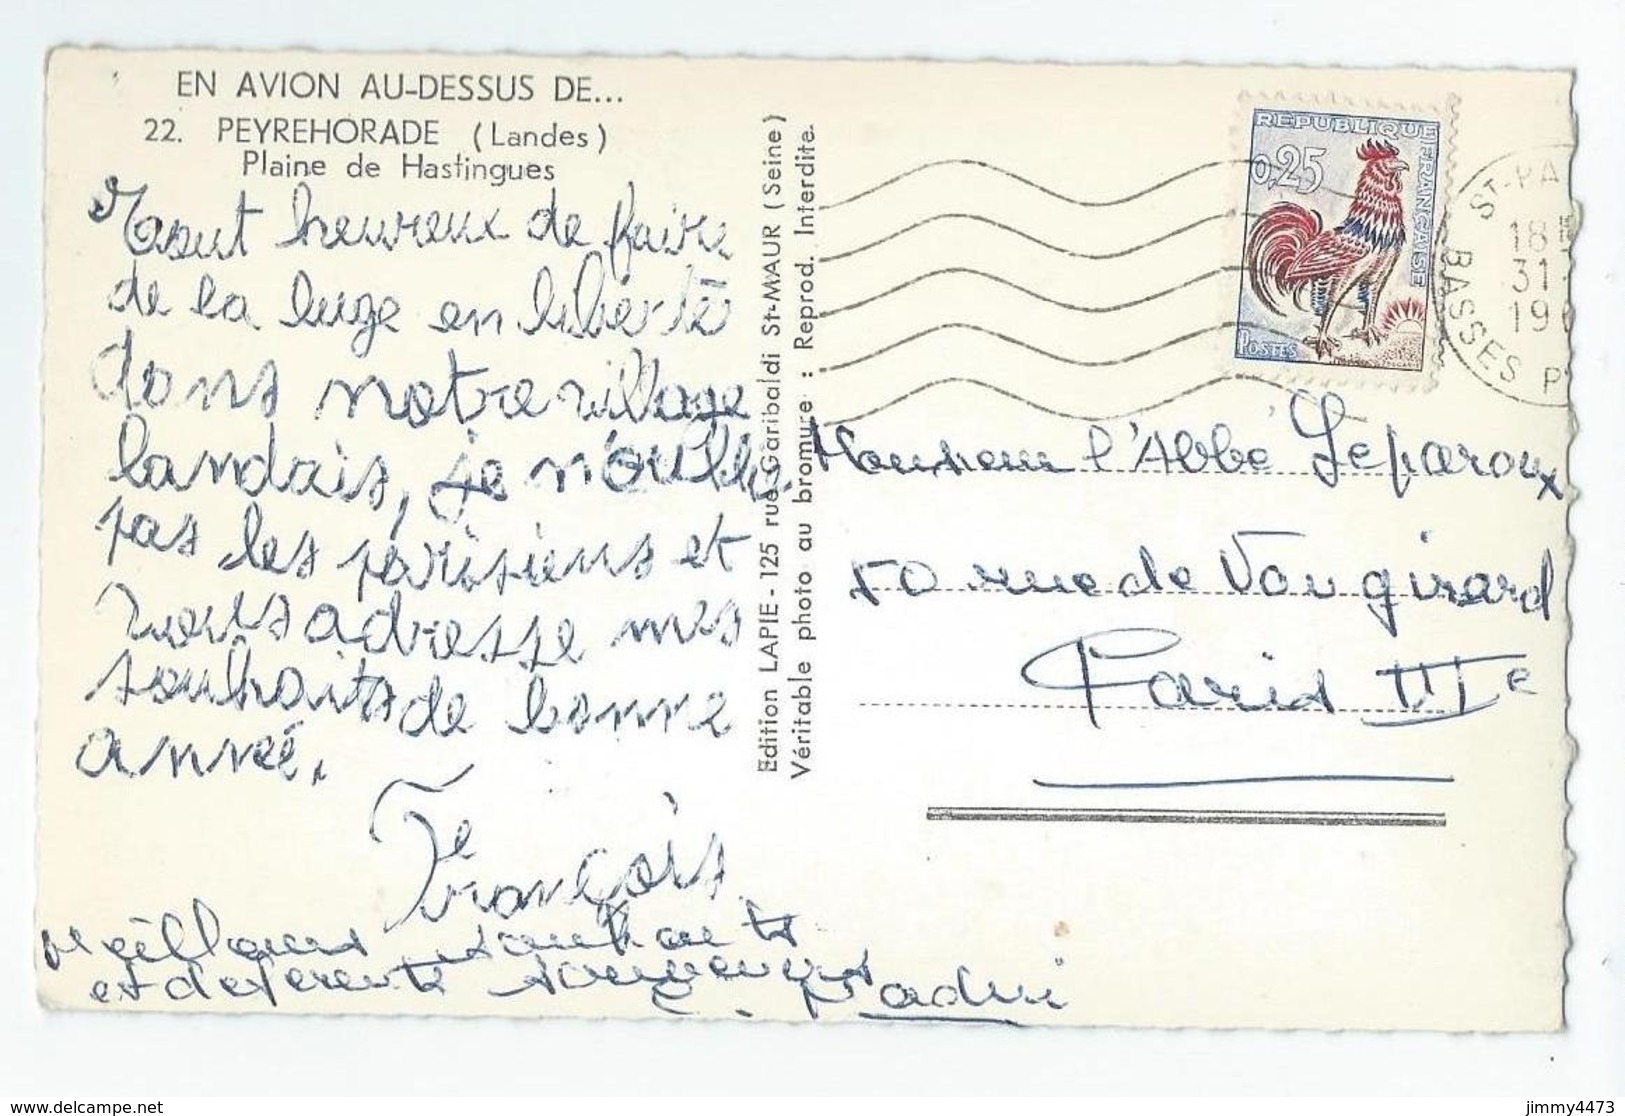 EN AVION AU-DESSUS DE...
22. PEYREHORADE (Landes)
Plaine de Hastingues
Tout heureux de faire
de la luge en liberté
dans notre village
landais, je n'oublie
pas les parisiens et
vous adresse mes
souhaits de bonne
année.
François
Meilleurs souhaits
et déférents
Edition LAPIE - 125 rue Garibaldi St-MAUR (Seine)
Véritable photo au bromure : Reprod. Interdite.
REPUBLIQUE FRANÇAISE
0,25
POSTES
ST-PA
18
31
19
BASSES P
Monsieur l'Abbé Leparoux
50 rue de Vaugirard
Paris VIe
jimmy4473